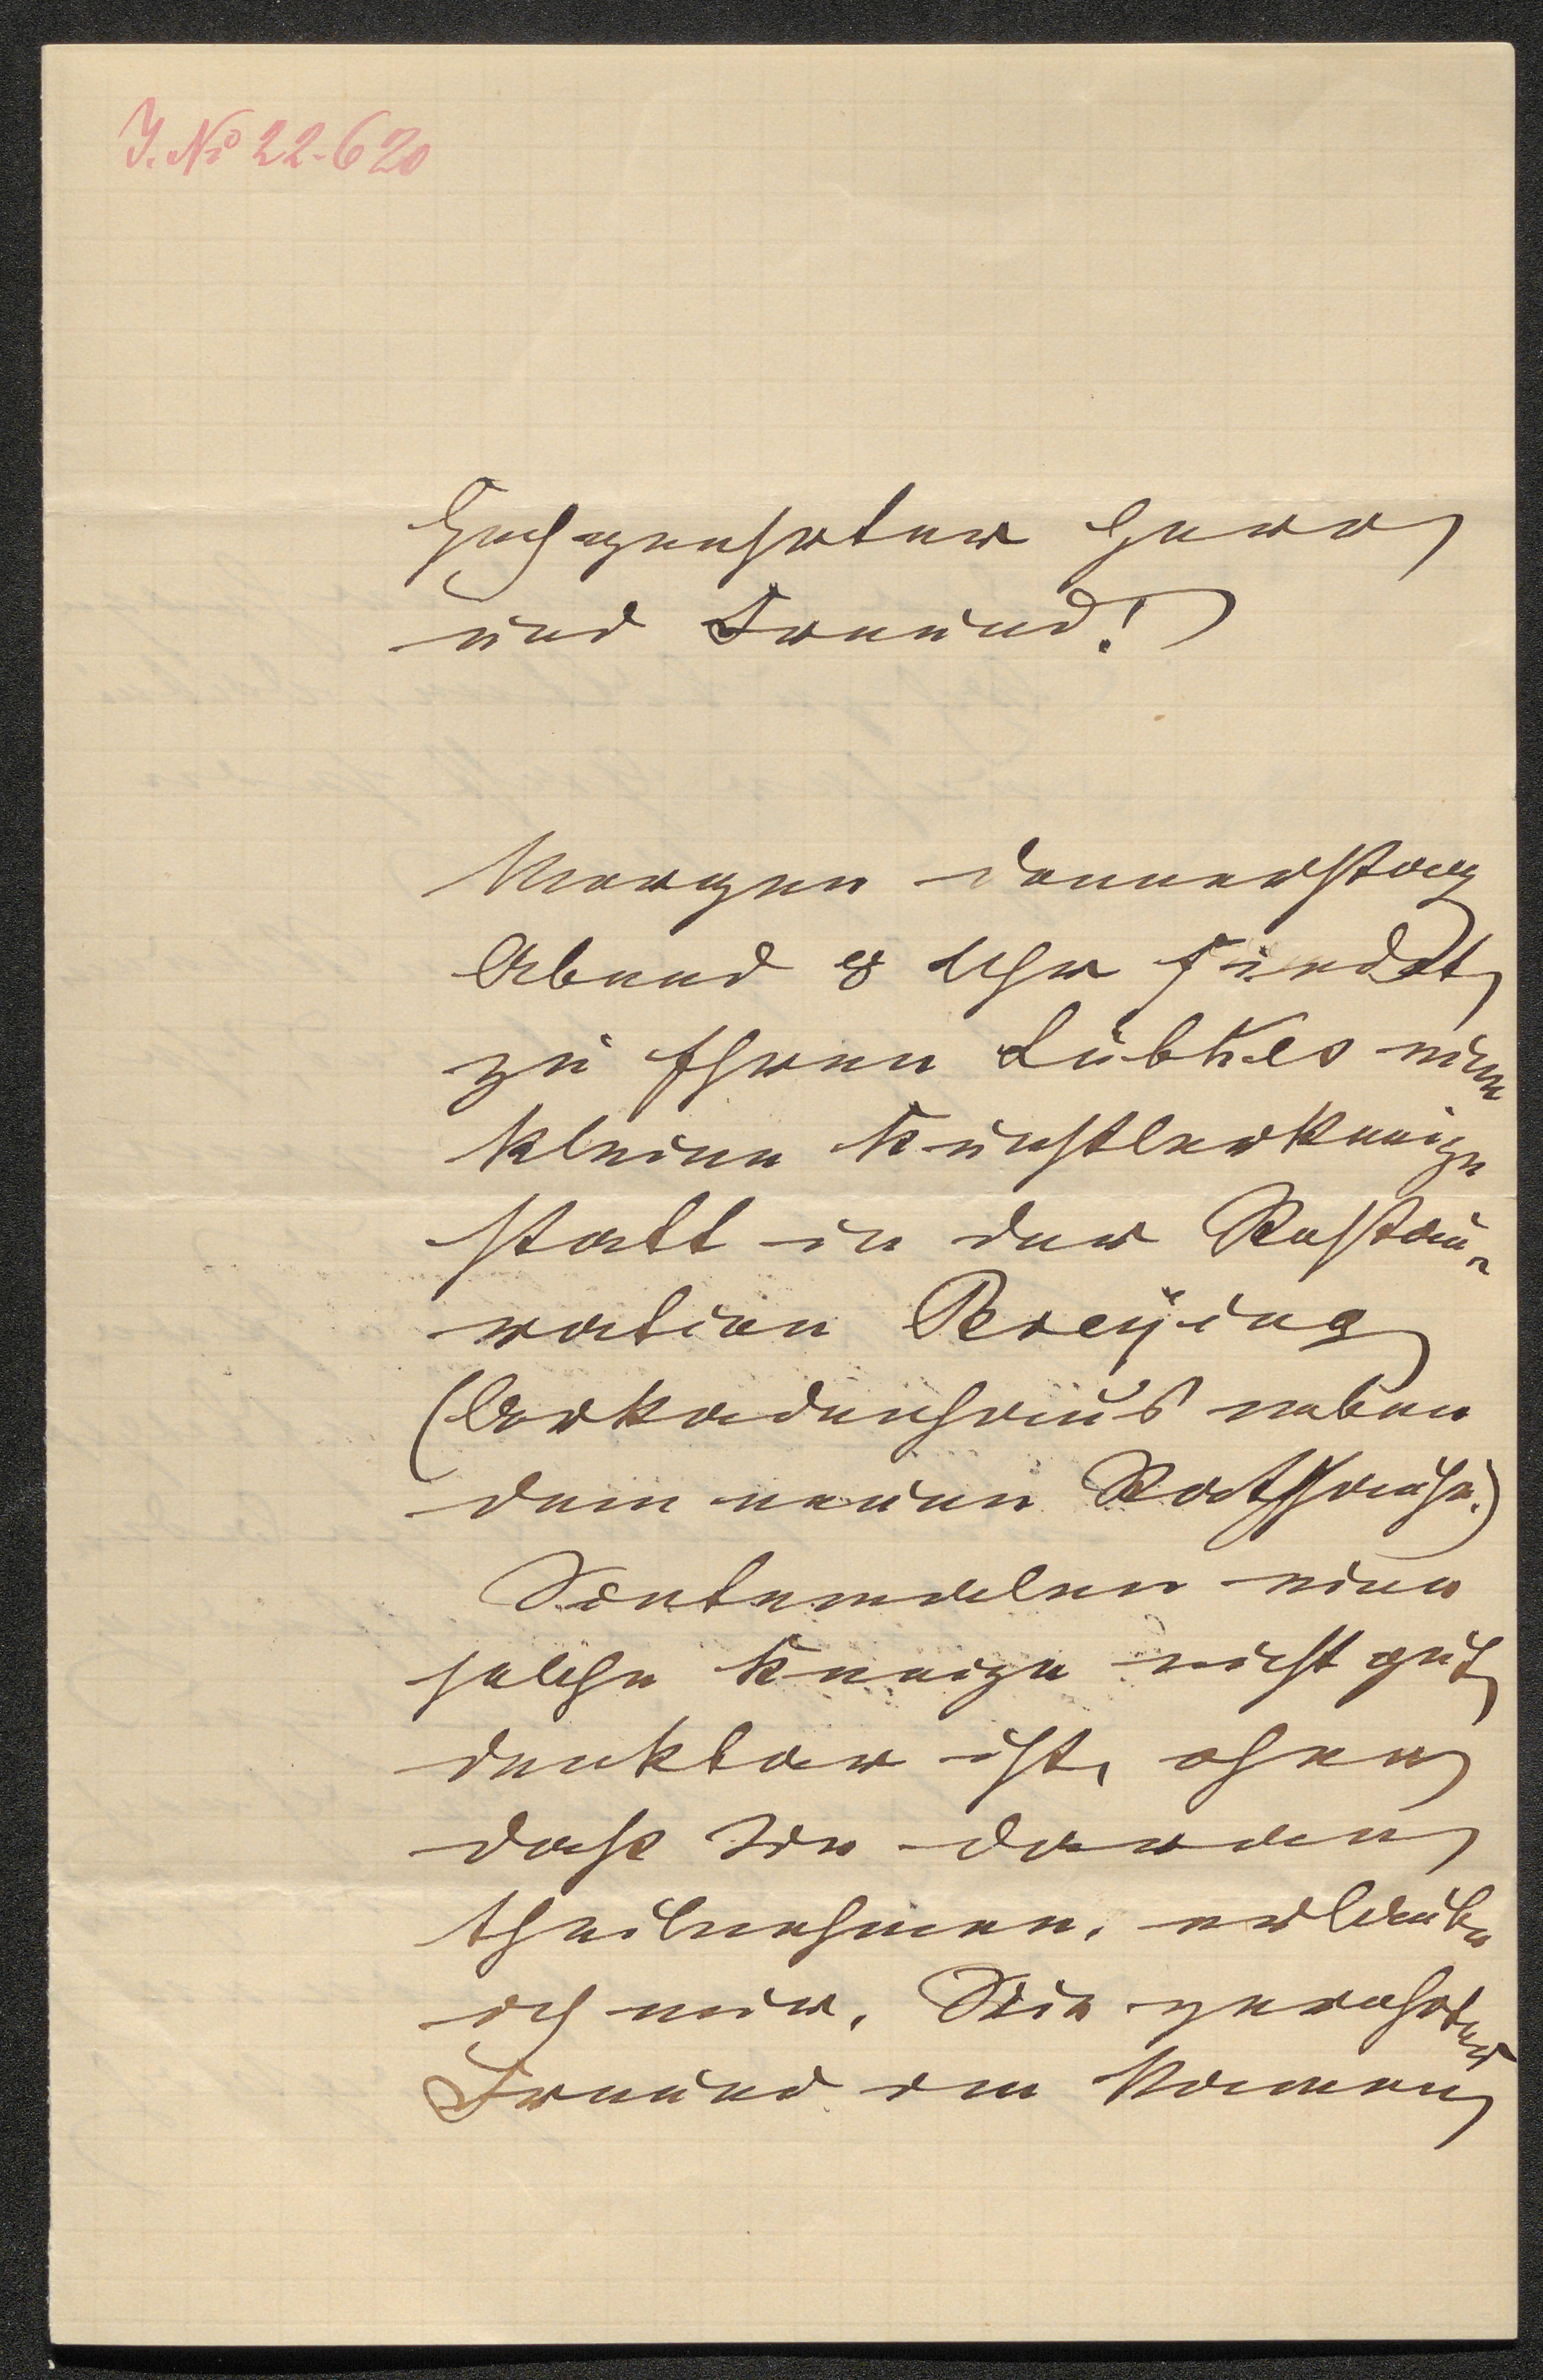 J. No 22.620
Hochgeehrter Herr
und Freund!
Morgen Donnerstag
Abend 8 Uhr findet
zu Ehren Lübkes eine
kleine Künstlerkneipe
statt in der Restau-
ration Breying
(Arkadenhaus neben
dem neuen Rathhause.)
Sintemalen eine
solche Kneipe nicht gut
denkbar ist, ohne
dass Sie daran
theilnehmen, erlaube
ich mir, Sie geehrter
Freund im Namen